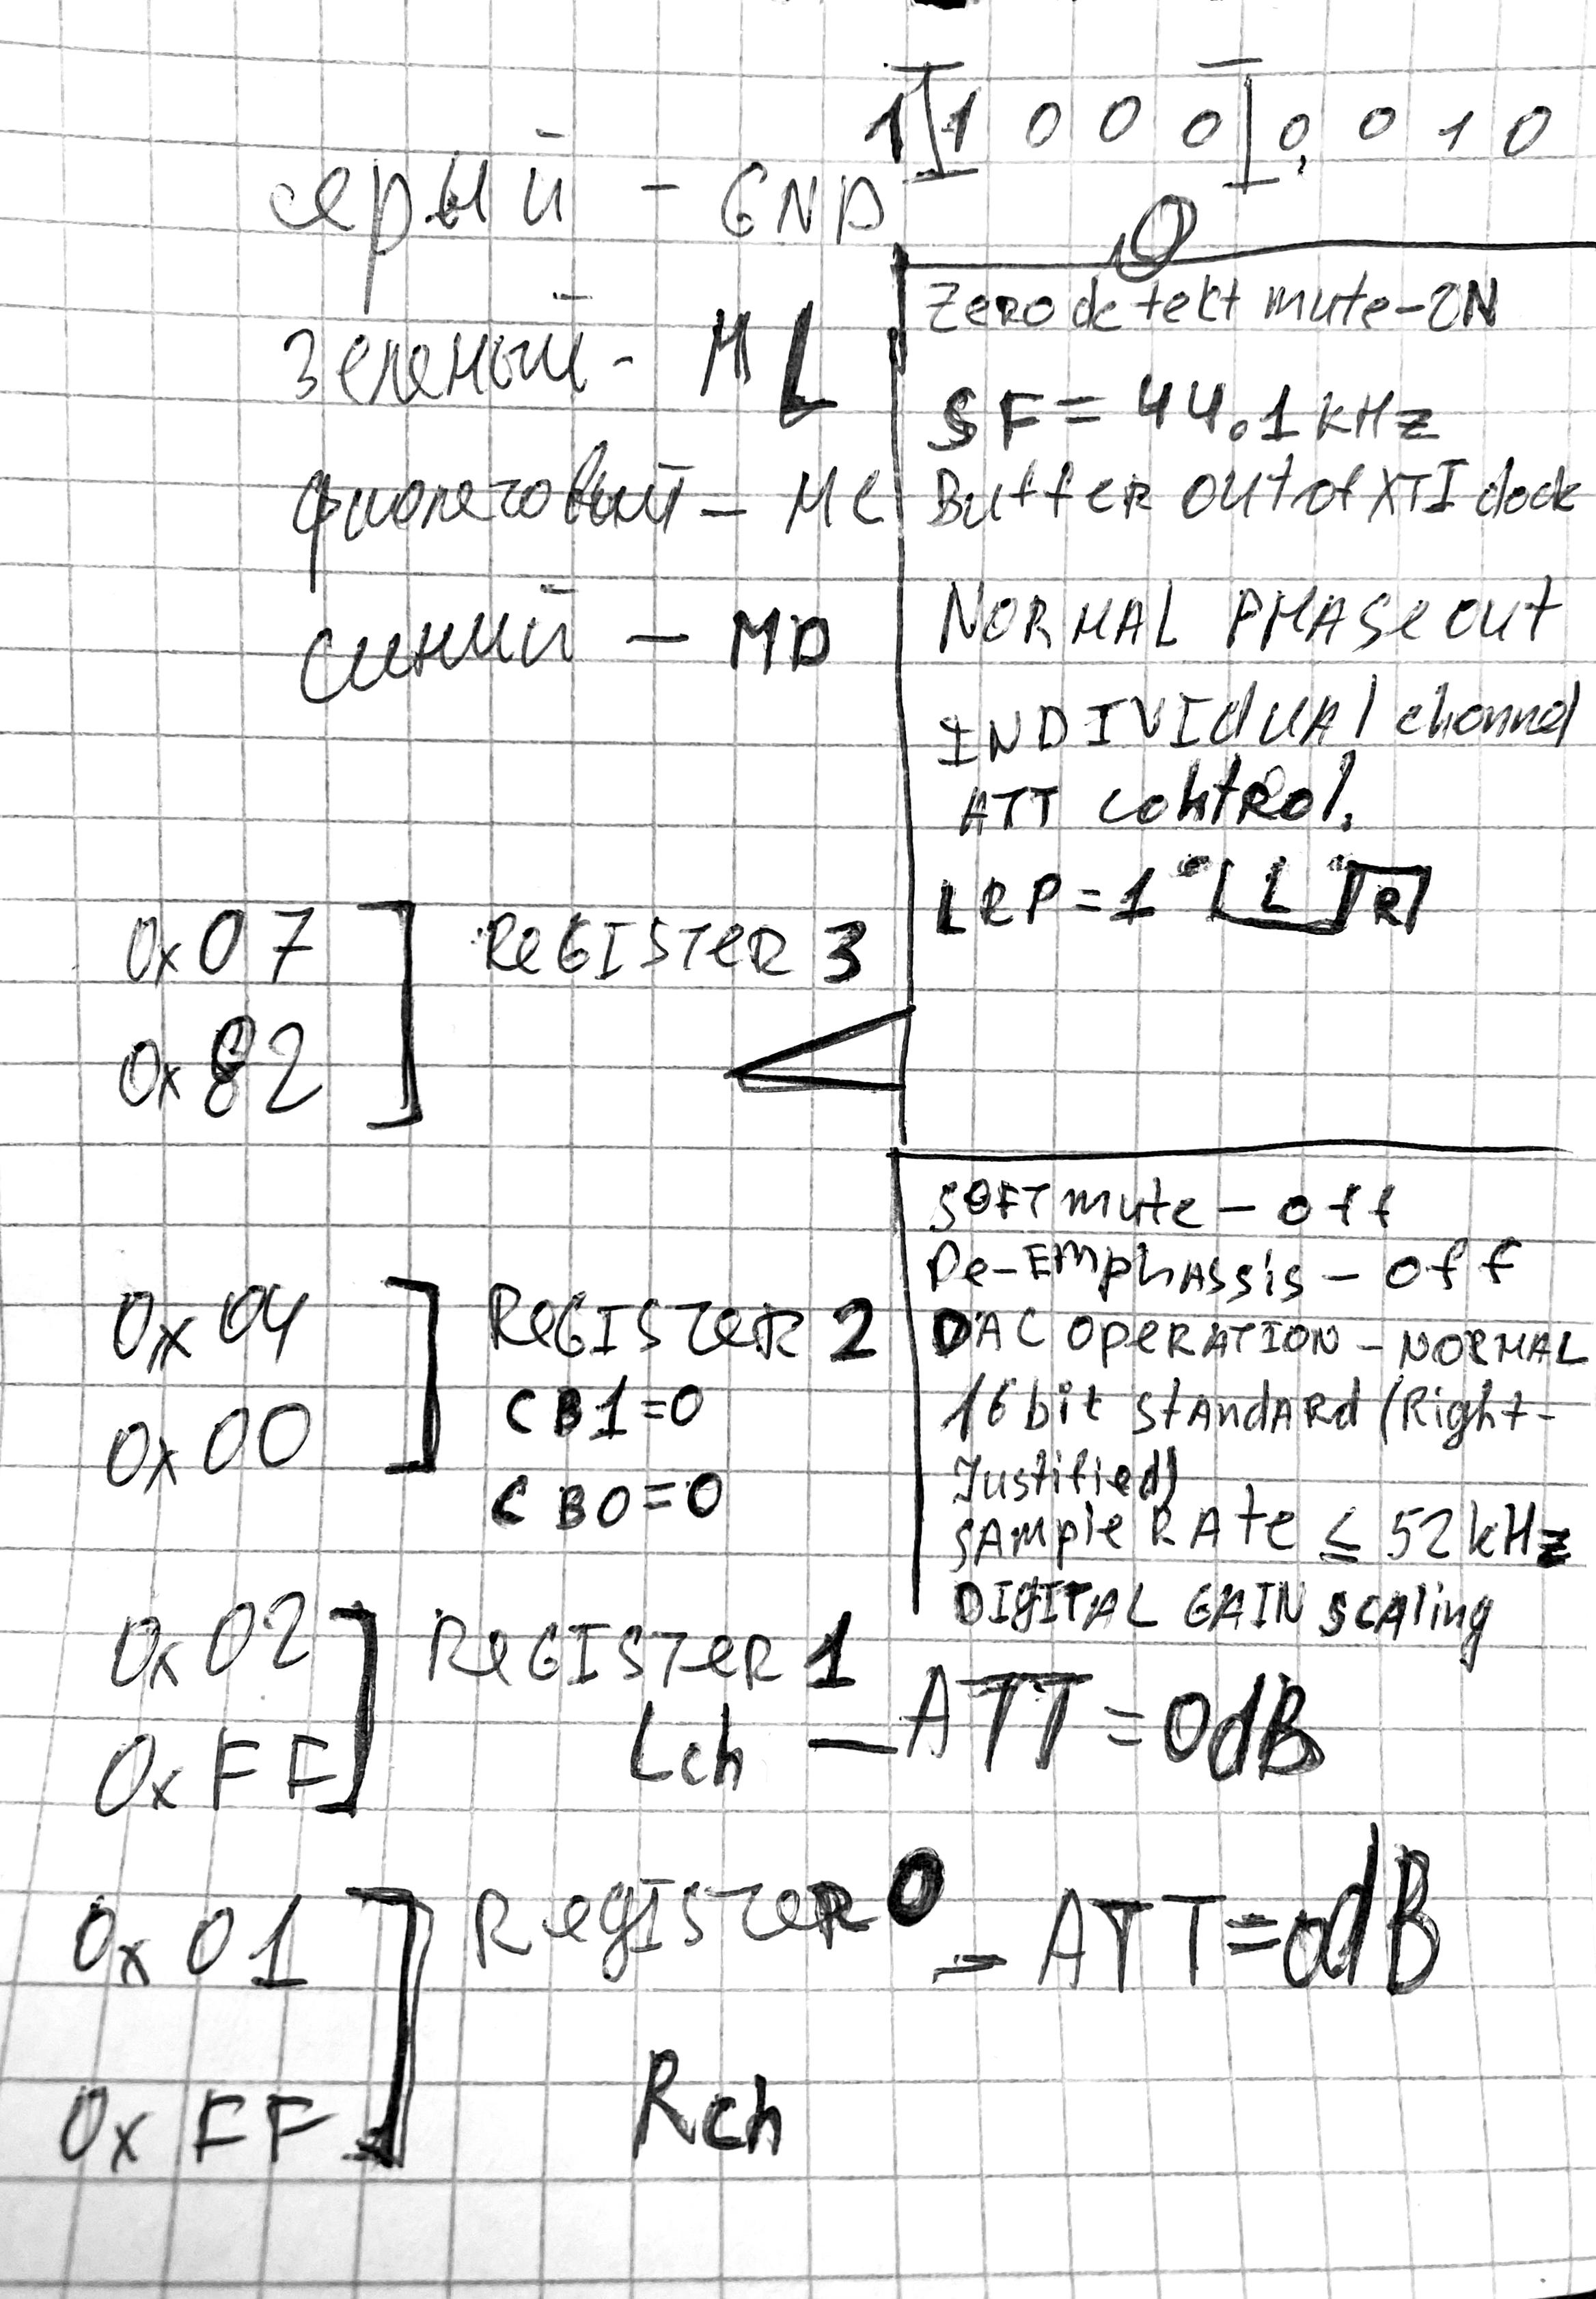 1 1 0 0 0 0 0 1 0
серый - GND
зеленый - ML
фиолетовый - MC
синий - MD
Zero detekt mute-ON
SF = 44.1 kHz
Buffer out of XTI clock
NORMAL PHASE out
INDIVIdUAl channel
ATT control.
LRP=1 L R
0x07
0x82
REGISTER 3
SOFT mute - off
De-EmphAssis - off
DAC OPERATION - NORMAL
16 bit StAndARd (Right-
Justified)
SAmple RAte ≤ 52 kHz
DIgITAL GAIN SCAling
0x04
0x00
REGISTER 2
CB1=0
CB0=0
0x02
0xFF
REGISTER 1
Lch - ATT = 0dB
0x01
0xFF
RegISTER 0 - ATT=0dB
Rch